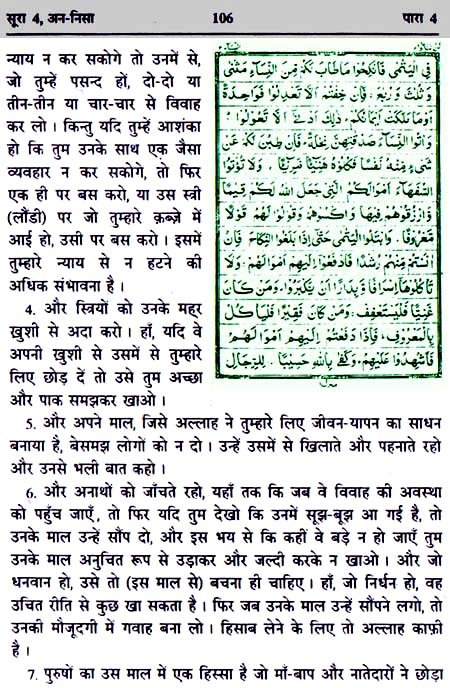 सूरा 4, अन-निसा 106 पारा 4
न्याय न कर सकोगे तो उनमें से,
जो तुम्हें पसन्द हों, दो-दो या
तीन-तीन या चार-चार से विवाह
कर लो। किन्तु यदि तुम्हें आशंका
हो कि तुम उनके साथ एक जैसा
व्यवहार न कर सकोगे, तो फिर
एक ही पर बस करो, या उस स्त्री
(लौंडी) पर जो तुम्हारे क़ब्ज़े में
आई हो, उसी पर बस करो। इसमें
तुम्हारे न्याय से न हटने की
अधिक संभावना है।
4. और स्त्रियों को उनके मह्र
ख़ुशी से अदा करो। हाँ, यदि वे
अपनी ख़ुशी से उसमें से तुम्हारे
लिए छोड़ दें तो उसे तुम अच्छा
और पाक समझकर खाओ।
فِي الْيَتٰمٰى فَانْكِحُوْا مَا طَابَ لَكُمْ مِّنَ النِّسَآءِ مَثْنٰى
وَثُلٰثَ وَرُبٰعَ ۚ فَاِنْ خِفْتُمْ اَلَّا تَعْدِلُوْا فَوَاحِدَةً
اَوْ مَا مَلَكَتْ اَيْمَانُكُمْ ۚ ذٰلِكَ اَدْنٰٓى اَلَّا تَعُوْلُوْا ۚ
وَاٰتُوا النِّسَآءَ صَدُقٰتِهِنَّ نِحْلَةً ۚ فَاِنْ طِبْنَ لَكُمْ عَنْ
شَيْءٍ مِّنْهُ نَفْسًا فَكُلُوْهُ هَنِيْٓئًا مَّرِيْٓئًا ۚ وَلَا تُؤْتُوا
السُّفَهَآءَ اَمْوَالَكُمُ الَّتِيْ جَعَلَ اللهُ لَكُمْ قِيٰمًا
وَّارْزُقُوْهُمْ فِيْهَا وَاكْسُوْهُمْ وَقُوْلُوْا لَهُمْ قَوْلًا
مَّعْرُوْفًا ۚ وَابْتَلُوا الْيَتٰمٰى حَتّٰٓى اِذَا بَلَغُوا النِّكَاحَ ۚ فَاِنْ
اٰنَسْتُمْ مِّنْهُمْ رُشْدًا فَادْفَعُوْٓا اِلَيْهِمْ اَمْوَالَهُمْ ۚ وَلَا
تَاْكُلُوْهَآ اِسْرَافًا وَّبِدَارًا اَنْ يَّكْبَرُوْا ۚ وَمَنْ كَانَ
غَنِيًّا فَلْيَسْتَعْفِفْ ۚ وَمَنْ كَانَ فَقِيْرًا فَلْيَاْكُلْ
بِالْمَعْرُوْفِ ۚ فَاِذَا دَفَعْتُمْ اِلَيْهِمْ اَمْوَالَهُمْ
فَاَشْهِدُوْا عَلَيْهِمْ ۚ وَكَفٰى بِاللهِ حَسِيْبًا ۚ لِلرِّجَالِ
5. और अपने माल, जिसे अल्लाह ने तुम्हारे लिए जीवन-यापन का साधन
बनाया है, बेसमझ लोगों को न दो। उन्हें उसमें से खिलाते और पहनाते रहो
और उनसे भली बात कहो।
6. और अनाथों को जाँचते रहो, यहाँ तक कि जब वे विवाह की अवस्था
को पहुँच जाएँ, तो फिर यदि तुम देखो कि उनमें सूझ-बूझ आ गई है, तो
उनके माल उन्हें सौंप दो, और इस भय से कि कहीं वे बड़े न हो जाएँ तुम
उनके माल अनुचित रूप से उड़ाकर और जल्दी करके न खाओ। और जो
धनवान हो, उसे तो (इस माल से) बचना ही चाहिए। हाँ, जो निर्धन हो, वह
उचित रीति से कुछ खा सकता है। फिर जब उनके माल उन्हें सौंपने लगो, तो
उनकी मौजूदगी में गवाह बना लो। हिसाब लेने के लिए तो अल्लाह काफ़ी
है।
7. पुरुषों का उस माल में एक हिस्सा है जो माँ-बाप और नातेदारों ने छोड़ा